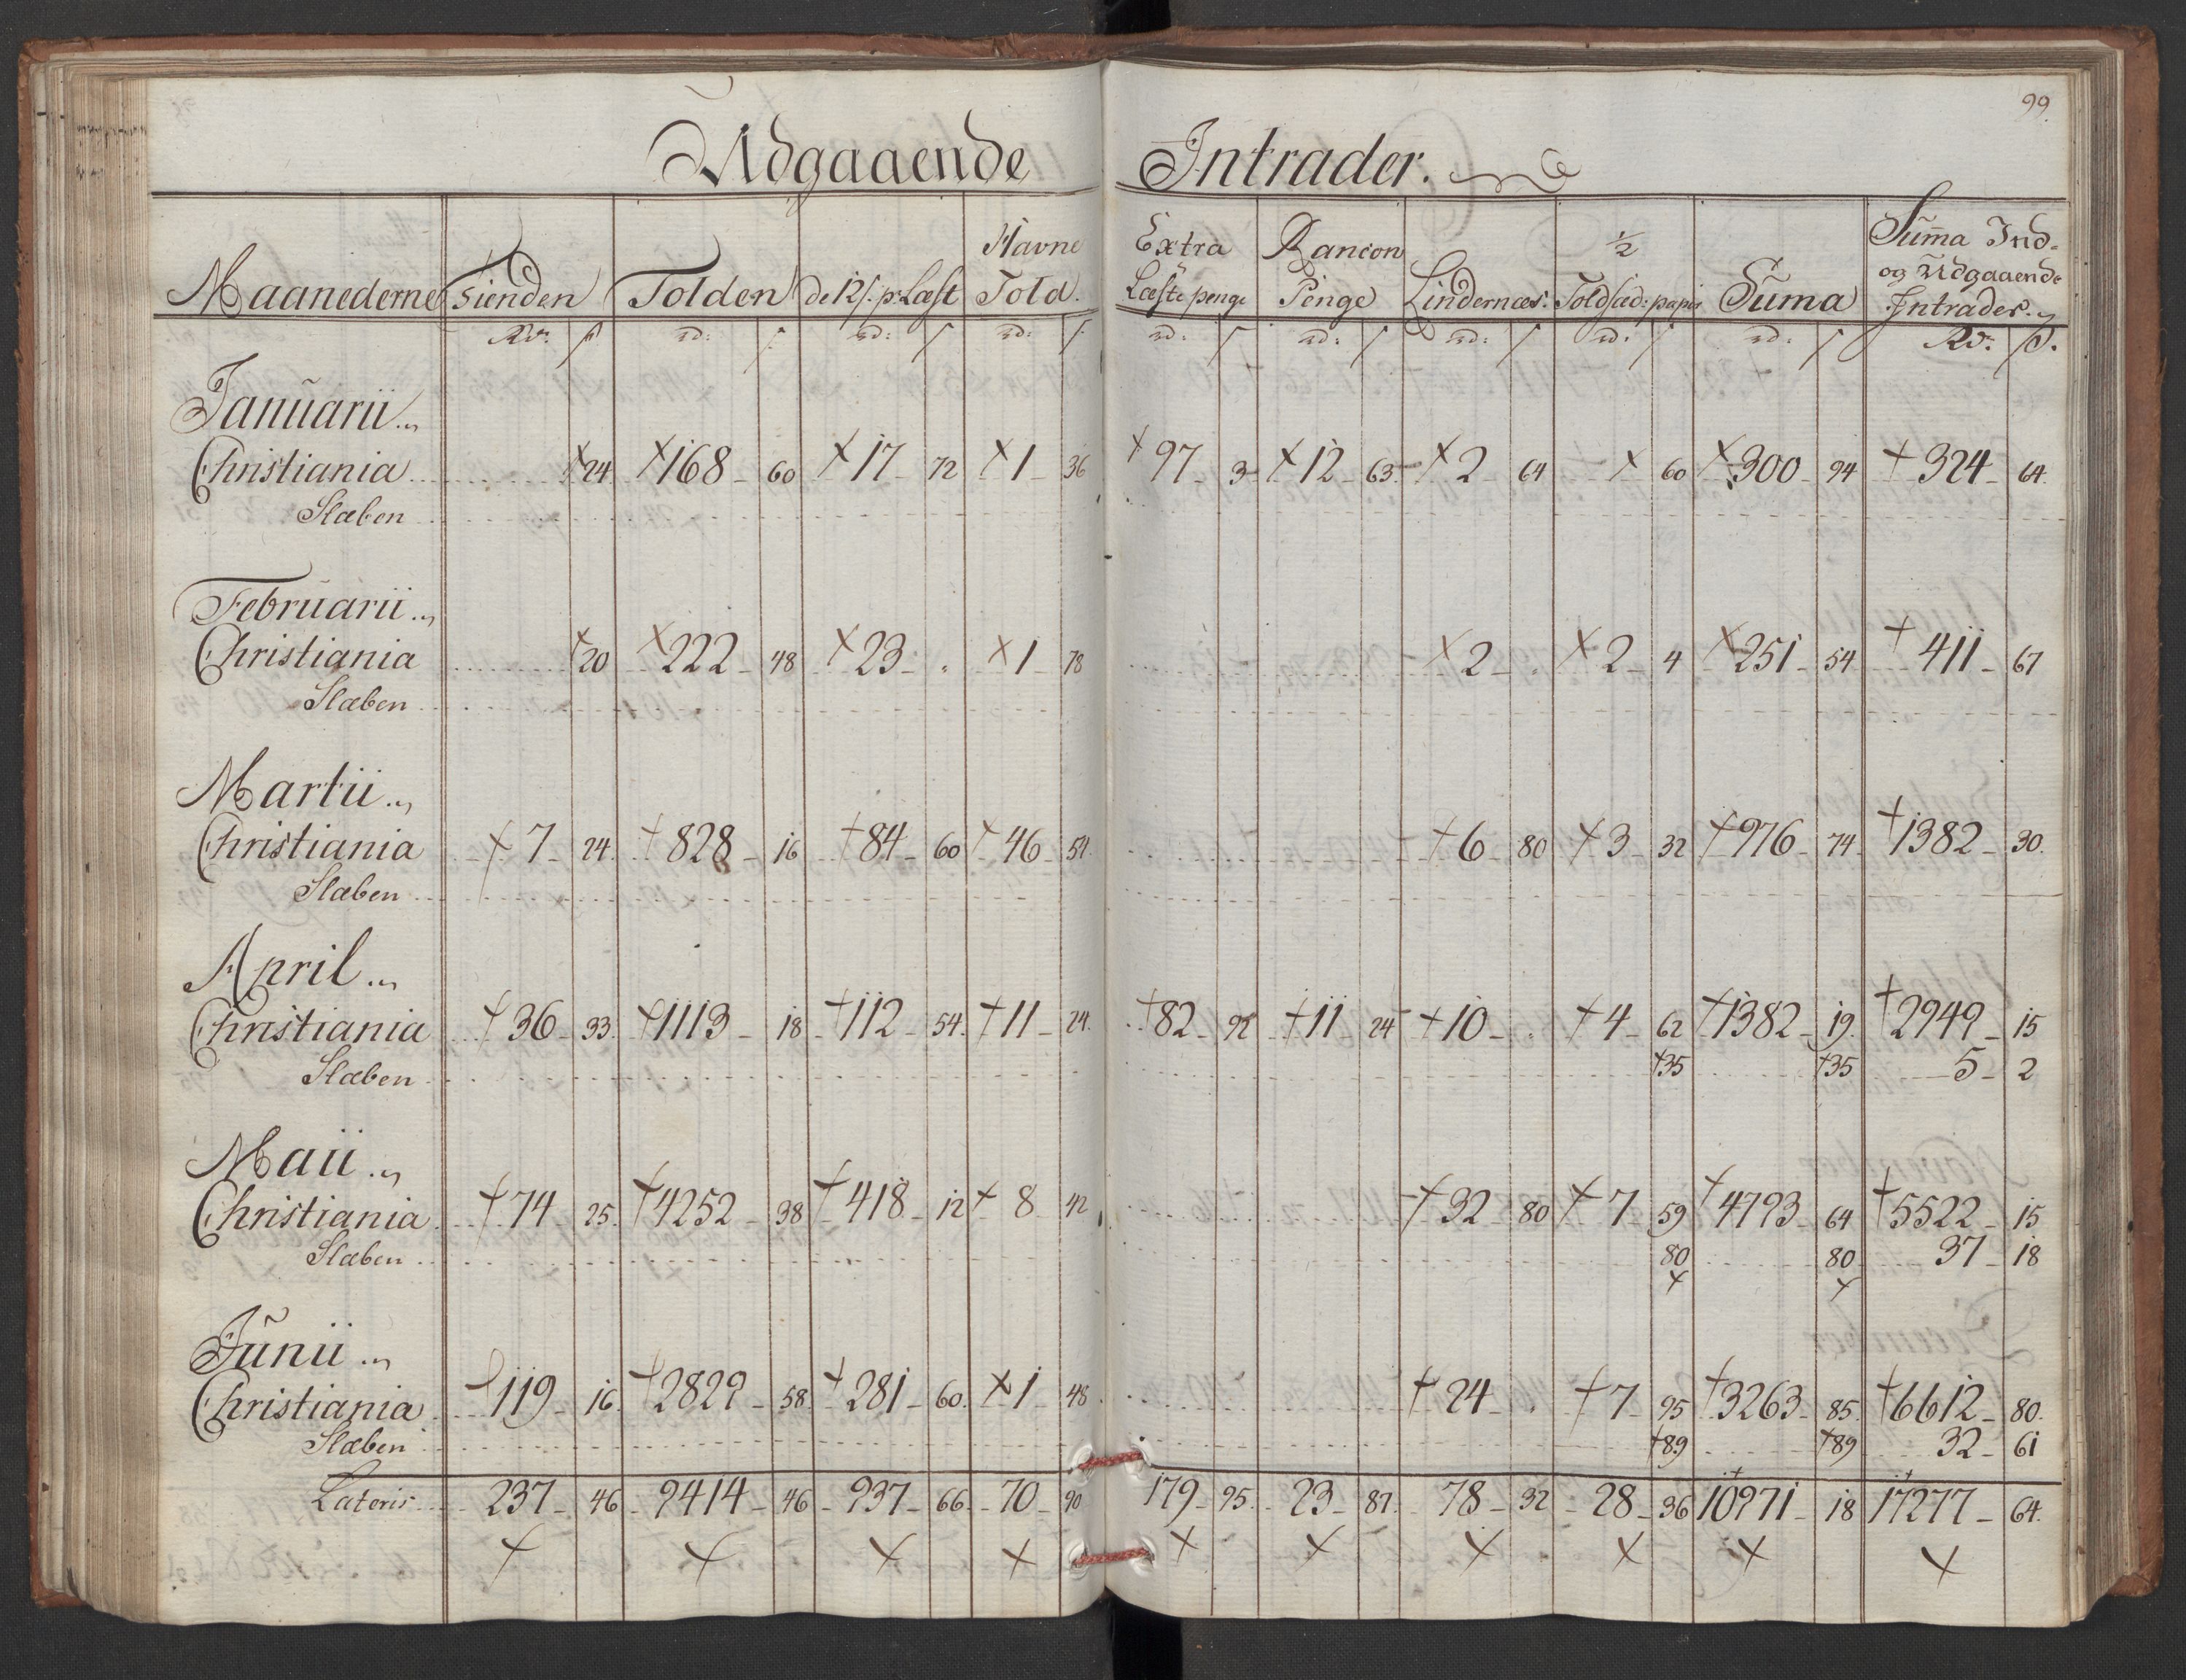 99.
Udgaaende Intrader.
Maanederne Tienden Tolden de 12 s. pr Læst Havne Told. Extra Læste penge Rancon Penge Lindernæs. ½ Toldsæd: papir Suma Suma Ind- og Udgaaende Intrader.
Rd: s rd: s rd: s rd: s rd: s rd: s rd: s rd: s rd: s Rd: s.
Januarii
Christiania 24 168 60 17 72 1 36 97 3 12 63 2 64 60 300 94 324 64.
Slæben
Februarii
Christiania 20 222 48 23 . 1 78 2 . 2 4 251 54 411 67
Slæben
Martii
Christiania 7 24 828 16 84 60 46 54 6 80 3 32 976 74 1382 30.
Slæben
April
Christiania 36 33 1113 18 112 54 11 24 82 92 11 24 10 . 4 62 1382 19 2949 15
Slæben 35 35 5 2
Maii
Christiania 74 25 4252 38 418 12 8 42 32 80 7 59 4793 64 5522 15
Slæben 80 80 37 18
Junii
Christiania 119 16 2829 58 281 60 1 48 24 . 7 95 3263 85 6612 80.
Slæben 89 89 32 61
Lateris 237 46 9414 46 937 66 70 90 179 95 23 87 78 32 28 36 10971 18 17277 64.